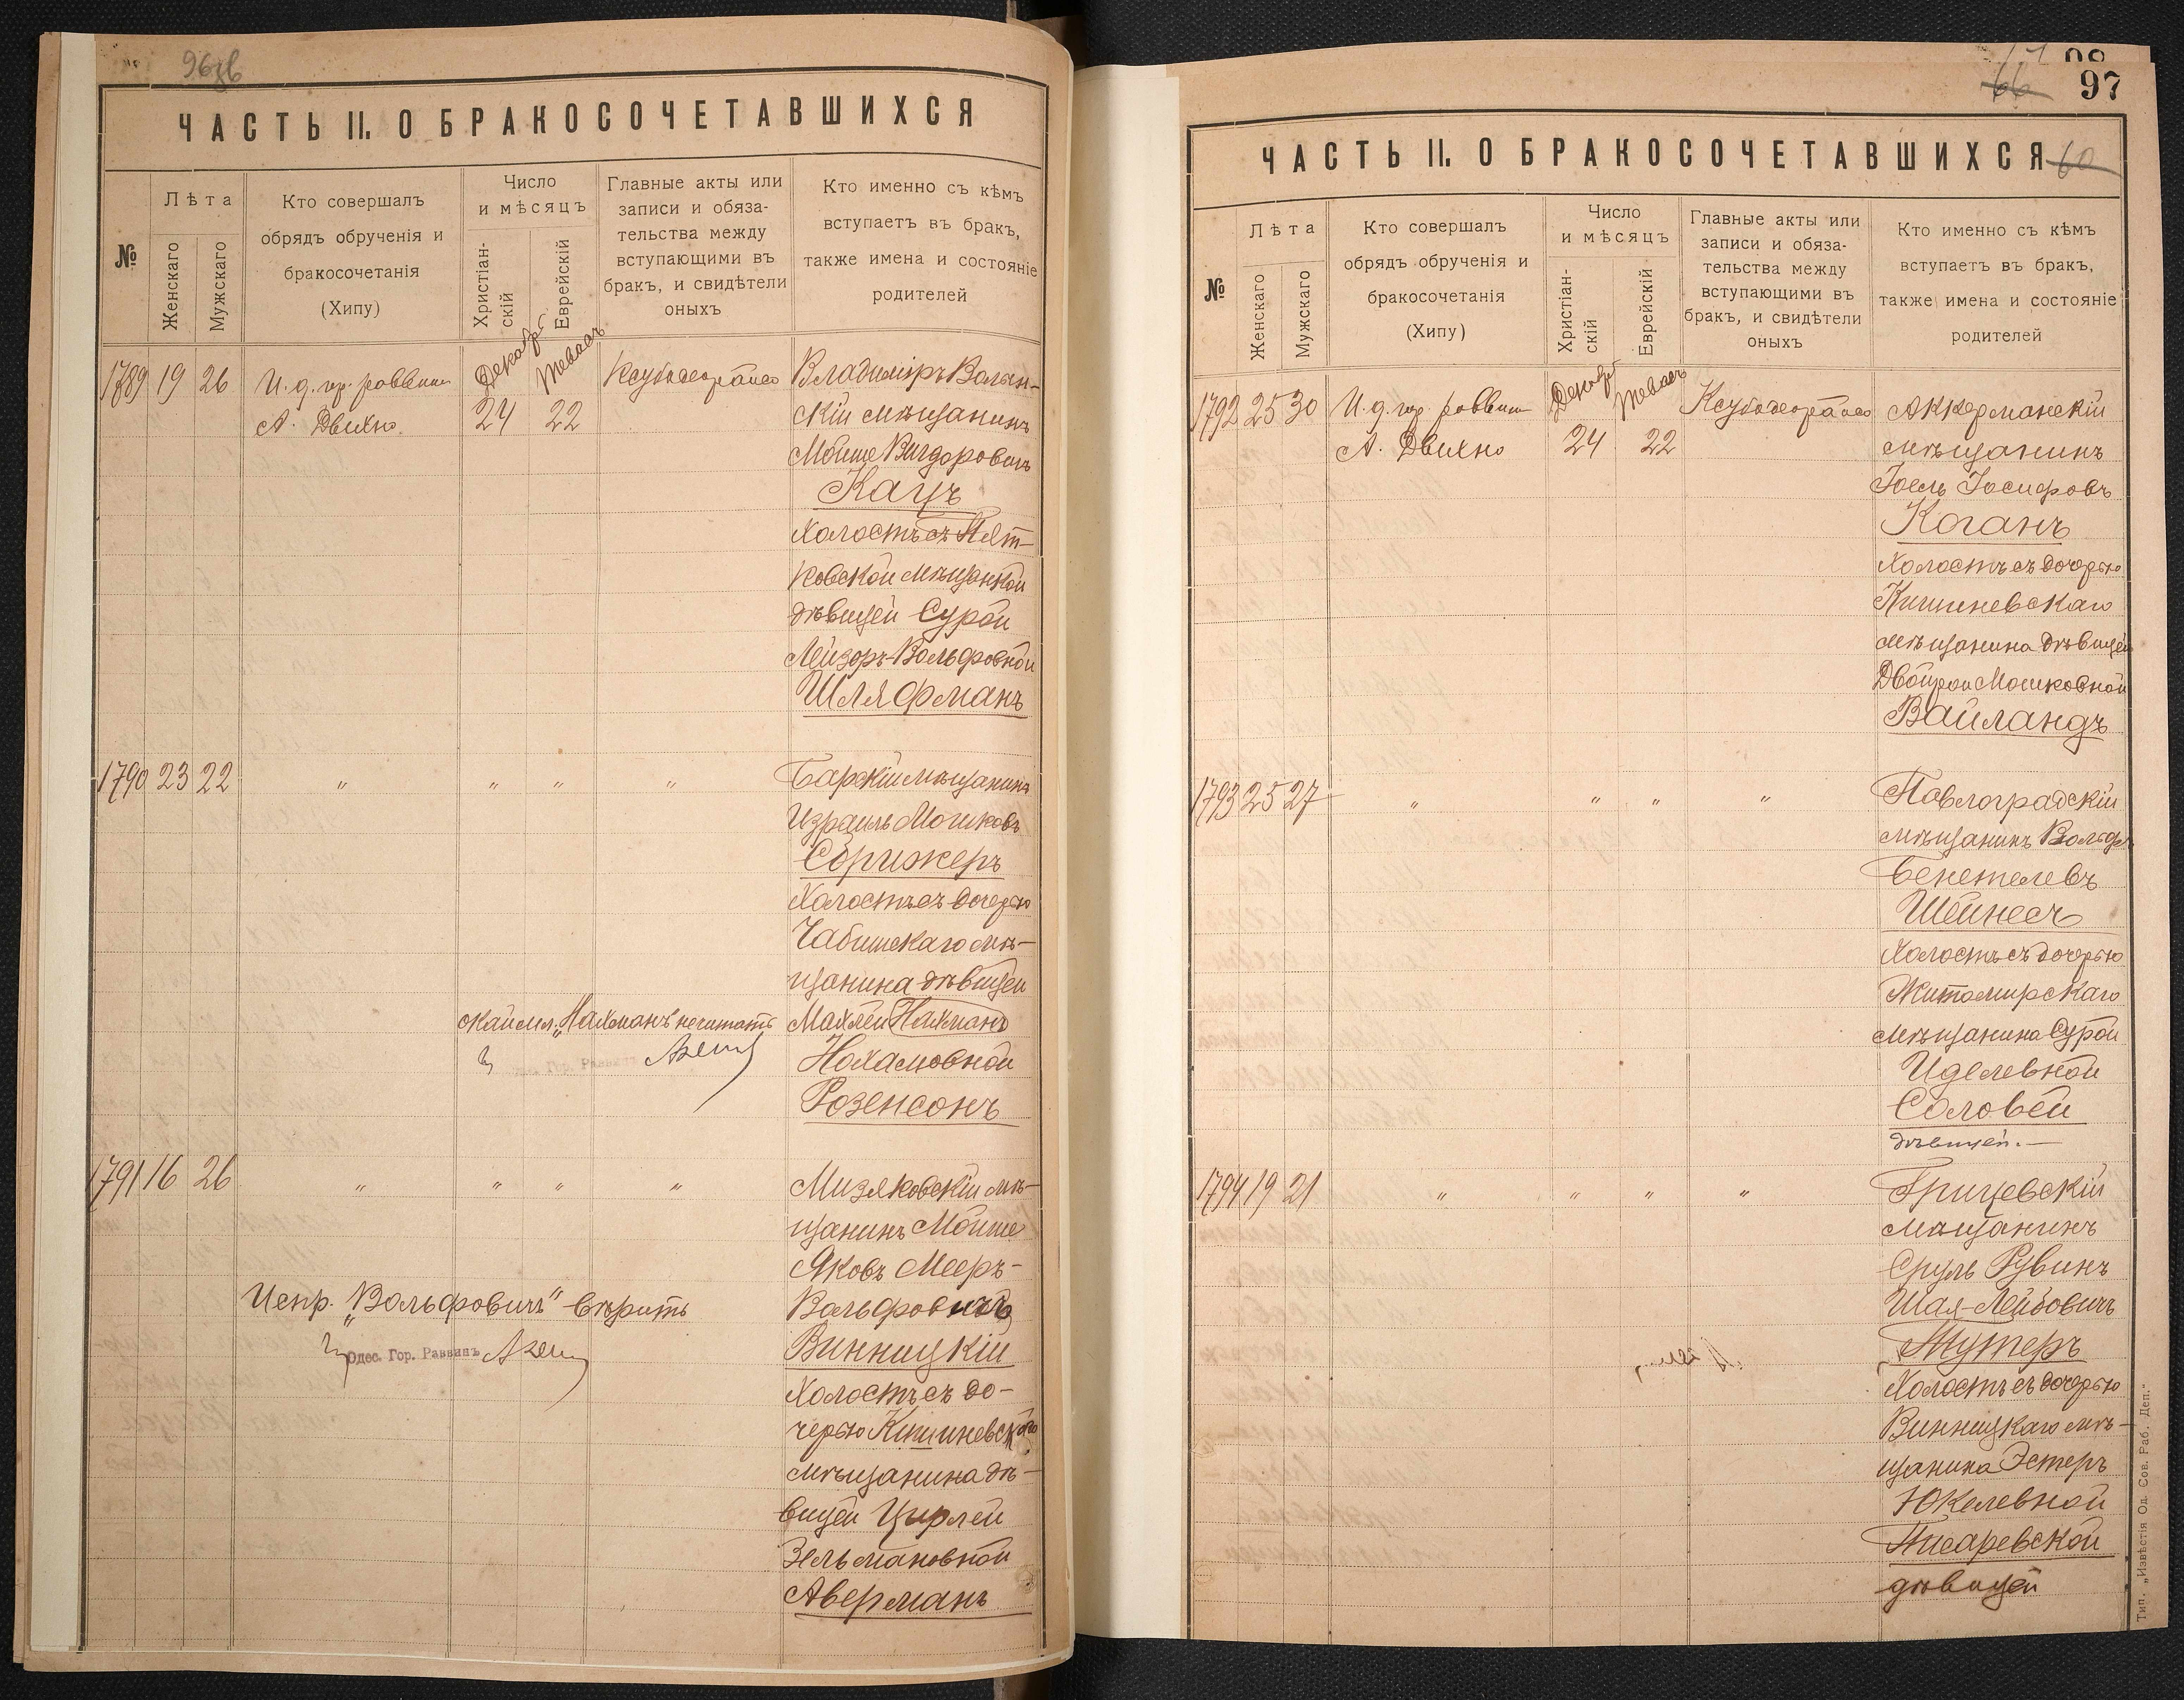 96об
ЧАСТЬ II. О БРАКОСОЧЕТАВШИХСЯ
№
Лѣта
Женскаго
Мужскаго
Кто совершалъ
обрядъ обрученія и
бракосочетанія
(Хипу)
Число
и мѣсяцъ
Христіан-
скій
Еврейскій
Главные акты или
записи и обяза-
тельства между
вступающими въ
бракъ, и свидѣтели
оныхъ
Кто именно съ кѣмъ
вступаетъ въ бракъ,
также имена и состояніе
родителей
1789 19 26 И. д. гр. раввина Декабр Тевасъ Владимиръ Волын-
А. Двихно 24 22 скій мѣщанинъ
Мойше Вигдоровичъ
Кацъ
Холостъ съ Пят-
ковской мѣщанкой
дѣвицей Сурой
Лейзоръ-Вольфовной
Шляфманъ
1790 23 22 " " " " Барскій мѣщанинъ
Израиль Мошковъ
Сфрижеръ
Холостъ съ дочерью
мѣ-
щанина дѣвицей
окаймл. „Нахманъ не читать Махлей Нахманъ
Нохамовной
Розенсонъ
1791 16 26 " " " " Мизяковскій мѣ-
щанинъ Мойше
Яковъ Мееръ-
Испр. „Вольфовичъ" вѣрить Вольфовичъ
Одес. Гор. Раввинъ Винницкій
Холостъ съ до-
черью Кишиневскаго
мѣщанина дѣ-
вицей Цырлей
Зельмановной
Аверманъ
66 97
ЧАСТЬ II. О БРАКОСОЧЕТАВШИХСЯ 60
№
Лѣта
Женскаго
Мужскаго
Кто совершалъ
обрядъ обрученія и
бракосочетанія
(Хипу)
Число
и мѣсяцъ
Христіан-
скій
Еврейскій
Главные акты или
записи и обяза-
тельства между
вступающими въ
бракъ, и свидѣтели
оныхъ
Кто именно съ кѣмъ
вступаетъ въ бракъ,
также имена и состояніе
родителей
1792 25 30 И. д. гр. раввина Декабр Тевасъ Аккерманскій
А. Двихно 24 22 мѣщанинъ
Іоель Іосифовъ
Коганъ
Холостъ съ дочерью
Кишиневскаго
мѣщанина дѣвицей
Двойрой Мошковной
Вайландъ
1793 25 27 " " " " Павлоградскій
мѣщанинъ Вольфъ
Шейнесъ
Холостъ съ дочерью
Житомирскаго
мѣщанина Сурой
Иделевной
Соловей
дѣвицей.—
1794 19 21 " " " " Грицевскій
мѣщанинъ
Сруль Рувинъ
Шая-Лейбовичъ
Мутеръ
Холостъ съ дочерью
Винницкаго мѣ-
щанина Эстеръ
Юкелевной
Писаревской
дѣвицей
Тип. „Извѣстія Од. Сов. Раб. Деп."